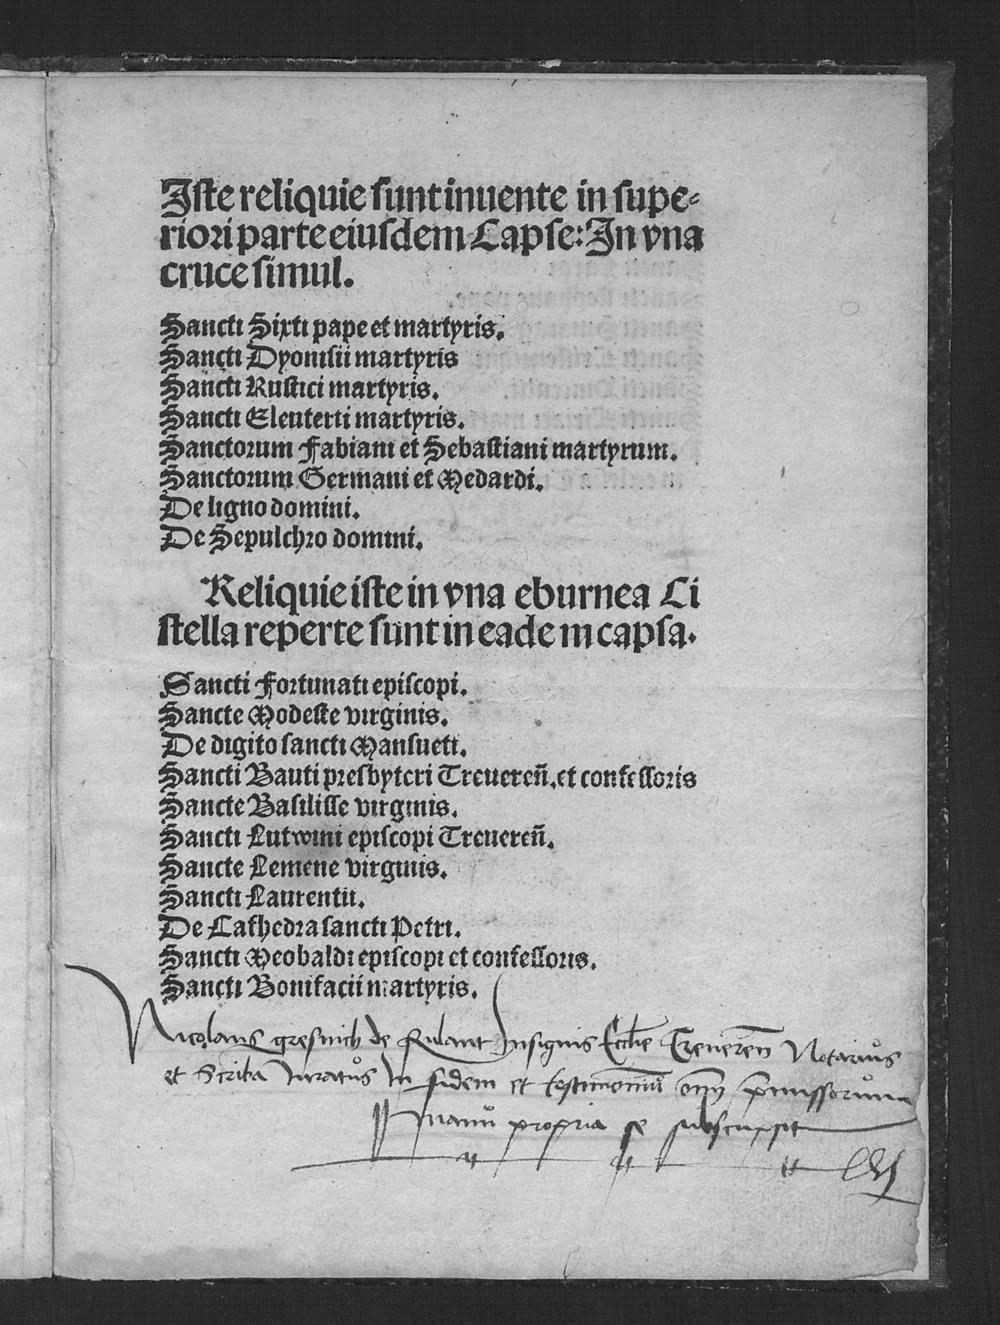 Iste reliquie sunt inuente in supe-
riori parte eiusdem Capse: In vna
cruce simul.
Sancti Sixti pape et martyris.
Sancti Dyonisii martyris
Sancti Rustici martyris.
Sancti Eleuterii martyris.
Sanctorum Fabiani et Sebastiani martyrum.
Sanctorum Germani et Medardi.
De ligno domini.
De Sepulchro domini.
Reliquie iste in vna eburnea Ci
stella reperte sunt in eadem capsa.
Sancti Fortunati episcopi.
Sancte Modeste virginis.
De digito sancti Mansueti.
Sancti Bauti presbyteri Treuereñ. et confessoris
Sancte Basilisse virginis.
Sancti Lutwini episcopi Treuereñ.
Sancte Lemene virginis.
Sancti Laurentii.
De Cathedra sancti Petri.
Sancti Meobaldi episcopi et confessoris.
Sancti Bonifacii martyris.
Nicolaus gresnich de Rulant Insignis Eccl̄ie Treuereñ Notarius
et Scriba Iuratus In fidem et testimoniū om̄ p̄missorum
Manu propria se subscripsit